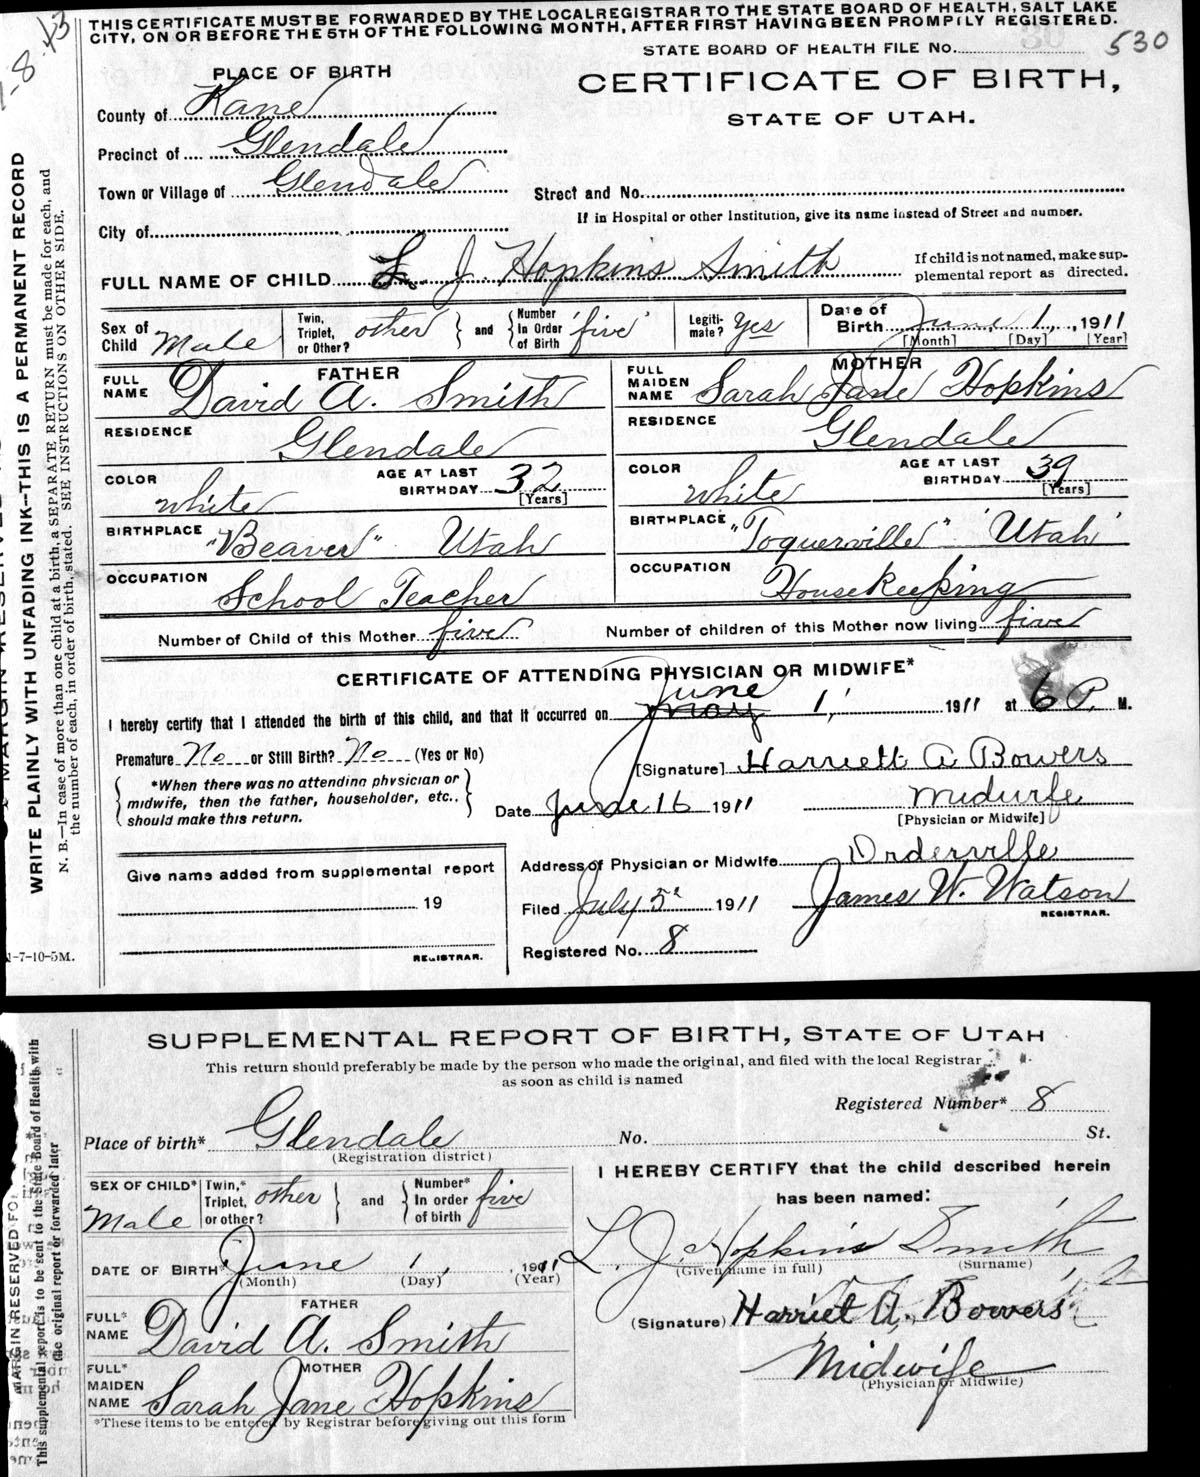 THIS CERTIFICATE MUST BE FORWARDED BY THE LOCAL REGISTRAR TO THE STATE BOARD OF HEALTH, SALT LAKE
CITY, ON OR BEFORE THE 5TH OF THE FOLLOWING MONTH, AFTER FIRST HAVING BEEN PROMPTLY REGISTERED.
STATE BOARD OF HEALTH FILE No. 530
PLACE OF BIRTH
CERTIFICATE OF BIRTH,
STATE OF UTAH.
County of Kane
Precinct of Glendale
Town or Village of Glendale
Street and No.
If in Hospital or other Institution, give its name instead of Street and number.
City of
FULL NAME OF CHILD L. J. Hopkins Smith
If child is not named, make supplemental report as directed.
Sex of Child Male
Twin, Triplet, or Other? other and Number In Order of Birth 'five'
Legitimate? Yes
Date of Birth June 1, 1911
[Month] [Day] [Year]
FATHER
FULL NAME David A. Smith
RESIDENCE Glendale
COLOR white
AGE AT LAST BIRTHDAY 32 [Years]
BIRTHPLACE "Beaver" Utah
OCCUPATION School Teacher
MOTHER
FULL MAIDEN NAME Sarah Jane Hopkins
RESIDENCE Glendale
COLOR white
AGE AT LAST BIRTHDAY 39 [Years]
BIRTHPLACE "Toquerville" 'Utah'
OCCUPATION Housekeeping
Number of Child of this Mother five
Number of children of this Mother now living five
CERTIFICATE OF ATTENDING PHYSICIAN OR MIDWIFE*
June
I hereby certify that I attended the birth of this child, and that it occurred on May 1, 1911 at 6 P. M.
Premature No or Still Birth? No (Yes or No)
*When there was no attending physician or
midwife, then the father, householder, etc.,
should make this return.
[Signature] Harriett A Bowers
Date June 16 1911
Midwife
[Physician or Midwife]
Address of Physician or Midwife Orderville
Filed July 5 1911
James W. Watson
REGISTRAR.
Registered No. 8
Give name added from supplemental report
19
REGISTRAR.
1-7-10-5M.
WRITE PLAINLY WITH UNFADING INK--THIS IS A PERMANENT RECORD
N. B.—In case of more than one child at a birth, a SEPARATE RETURN must be made for each, and
the number of each, in order of birth, stated. SEE INSTRUCTIONS ON OTHER SIDE.
SUPPLEMENTAL REPORT OF BIRTH, STATE OF UTAH
This return should preferably be made by the person who made the original, and filed with the local Registrar
as soon as child is named
Registered Number* 8
Place of birth* Glendale No. St.
(Registration district)
SEX OF CHILD* Male
Twin,* Triplet, or other? other and Number* In order of birth five
DATE OF BIRTH* June 1, 1911
(Month) (Day) (Year)
FATHER
FULL* NAME David A. Smith
MOTHER
FULL* MAIDEN NAME Sarah Jane Hopkins
*These items to be entered by Registrar before giving out this form
I HEREBY CERTIFY that the child described herein
has been named:
L. J. Hopkins Smith
(Given name in full) (Surname)
(Signature) Harriet A. Bowers
Midwife
(Physician or Midwife)
MARGIN RESERVED FOR
This supplemental report is to be sent to the State Board of Health with
the original report or forwarded later